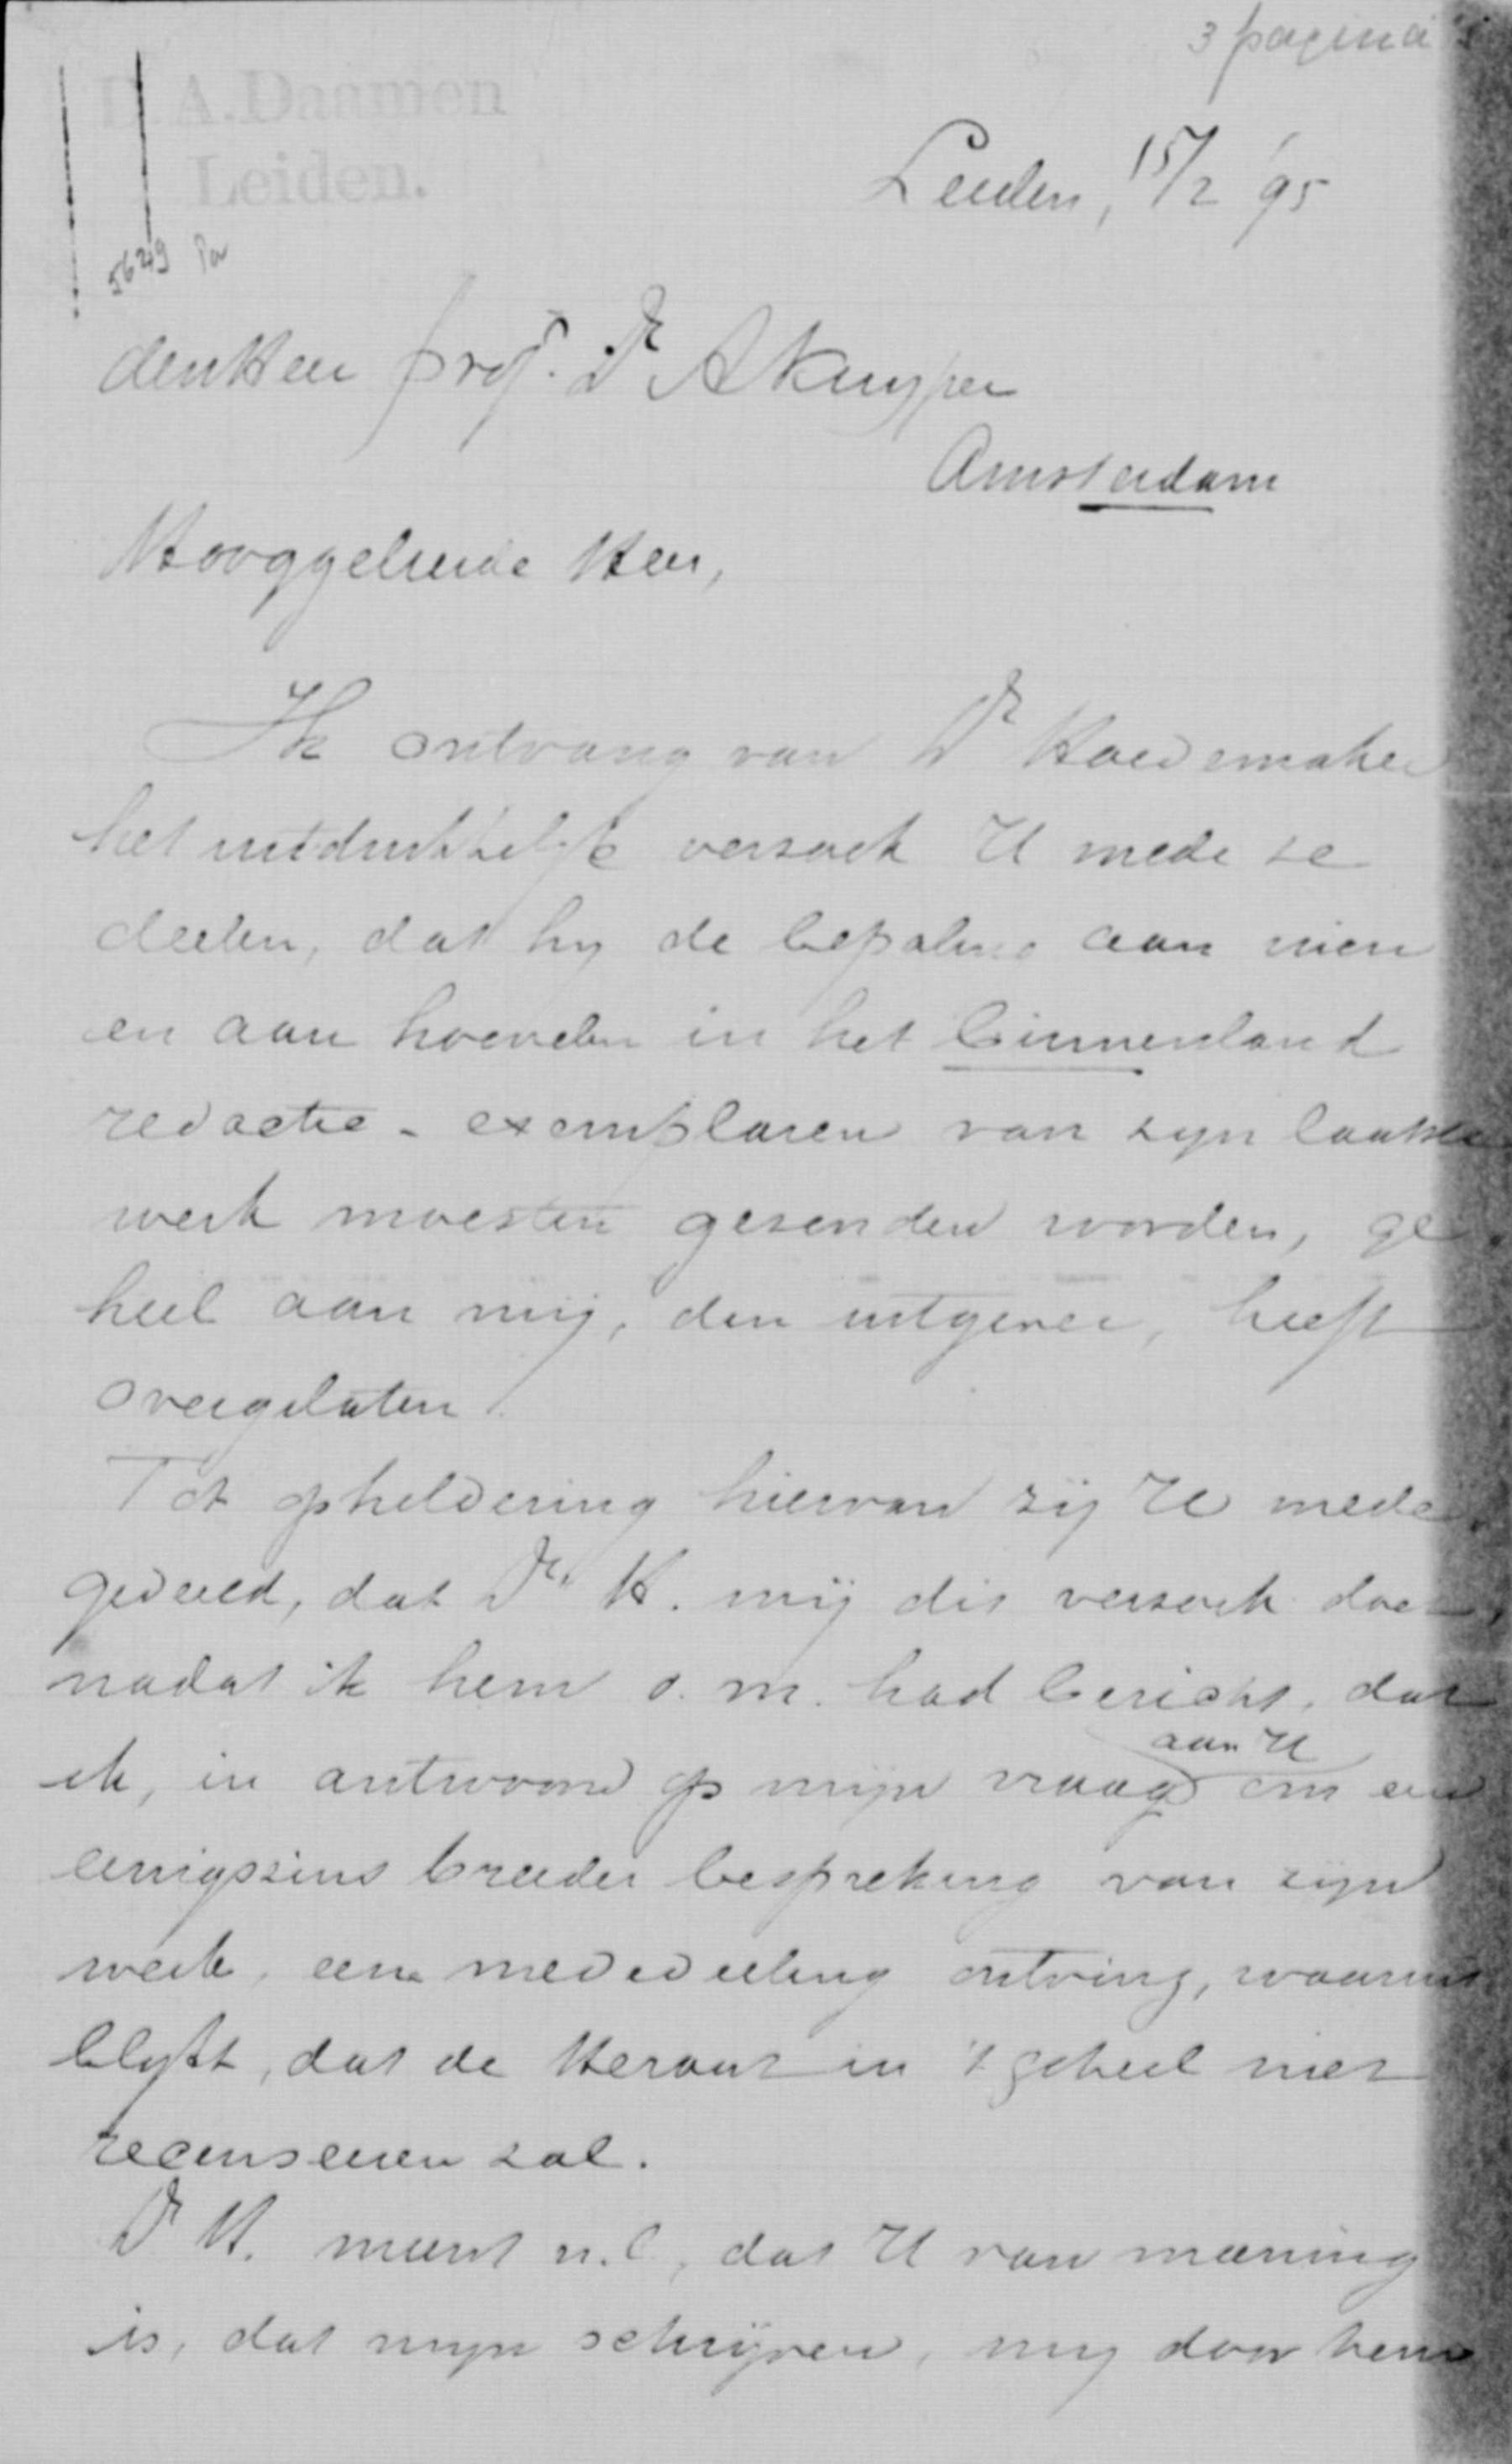 3 pagina's
D.A.Daamen
Leiden.
Leiden, 15/2 '95
5629
den Heer Prof. Dr A Kuyper
Amsterdam
Hooggeleerde Heer,
Ik ontvang van Dr Hoedemaker
het uitdrukkelijk verzoek U mede te
deelen, dat hy de bepaling aan wien
en aan hoevelen in het binnenland
redactie-exemplaren van zyn laatste
werk moesten gezonden worden, ge-
heel aan mij, den uitgever, heeft
overgelaten.
Tot opheldering hiervan zij U mede-
gedeeld, dat Dr. H. mij dit verzoek doet,
nadat ik hem o.m. had bericht, dat
aan U
ik, in antwoord op mijn vraag om een
eenigszins breeder bespreking van zijn
werk, een mededeeling ontving, waaruit
blykt, dat de Heraut in 't geheel niet
recenseeren zal.
Dr H. meent n.l., dat U van meening
is, dat mijn schrijven, my door hem